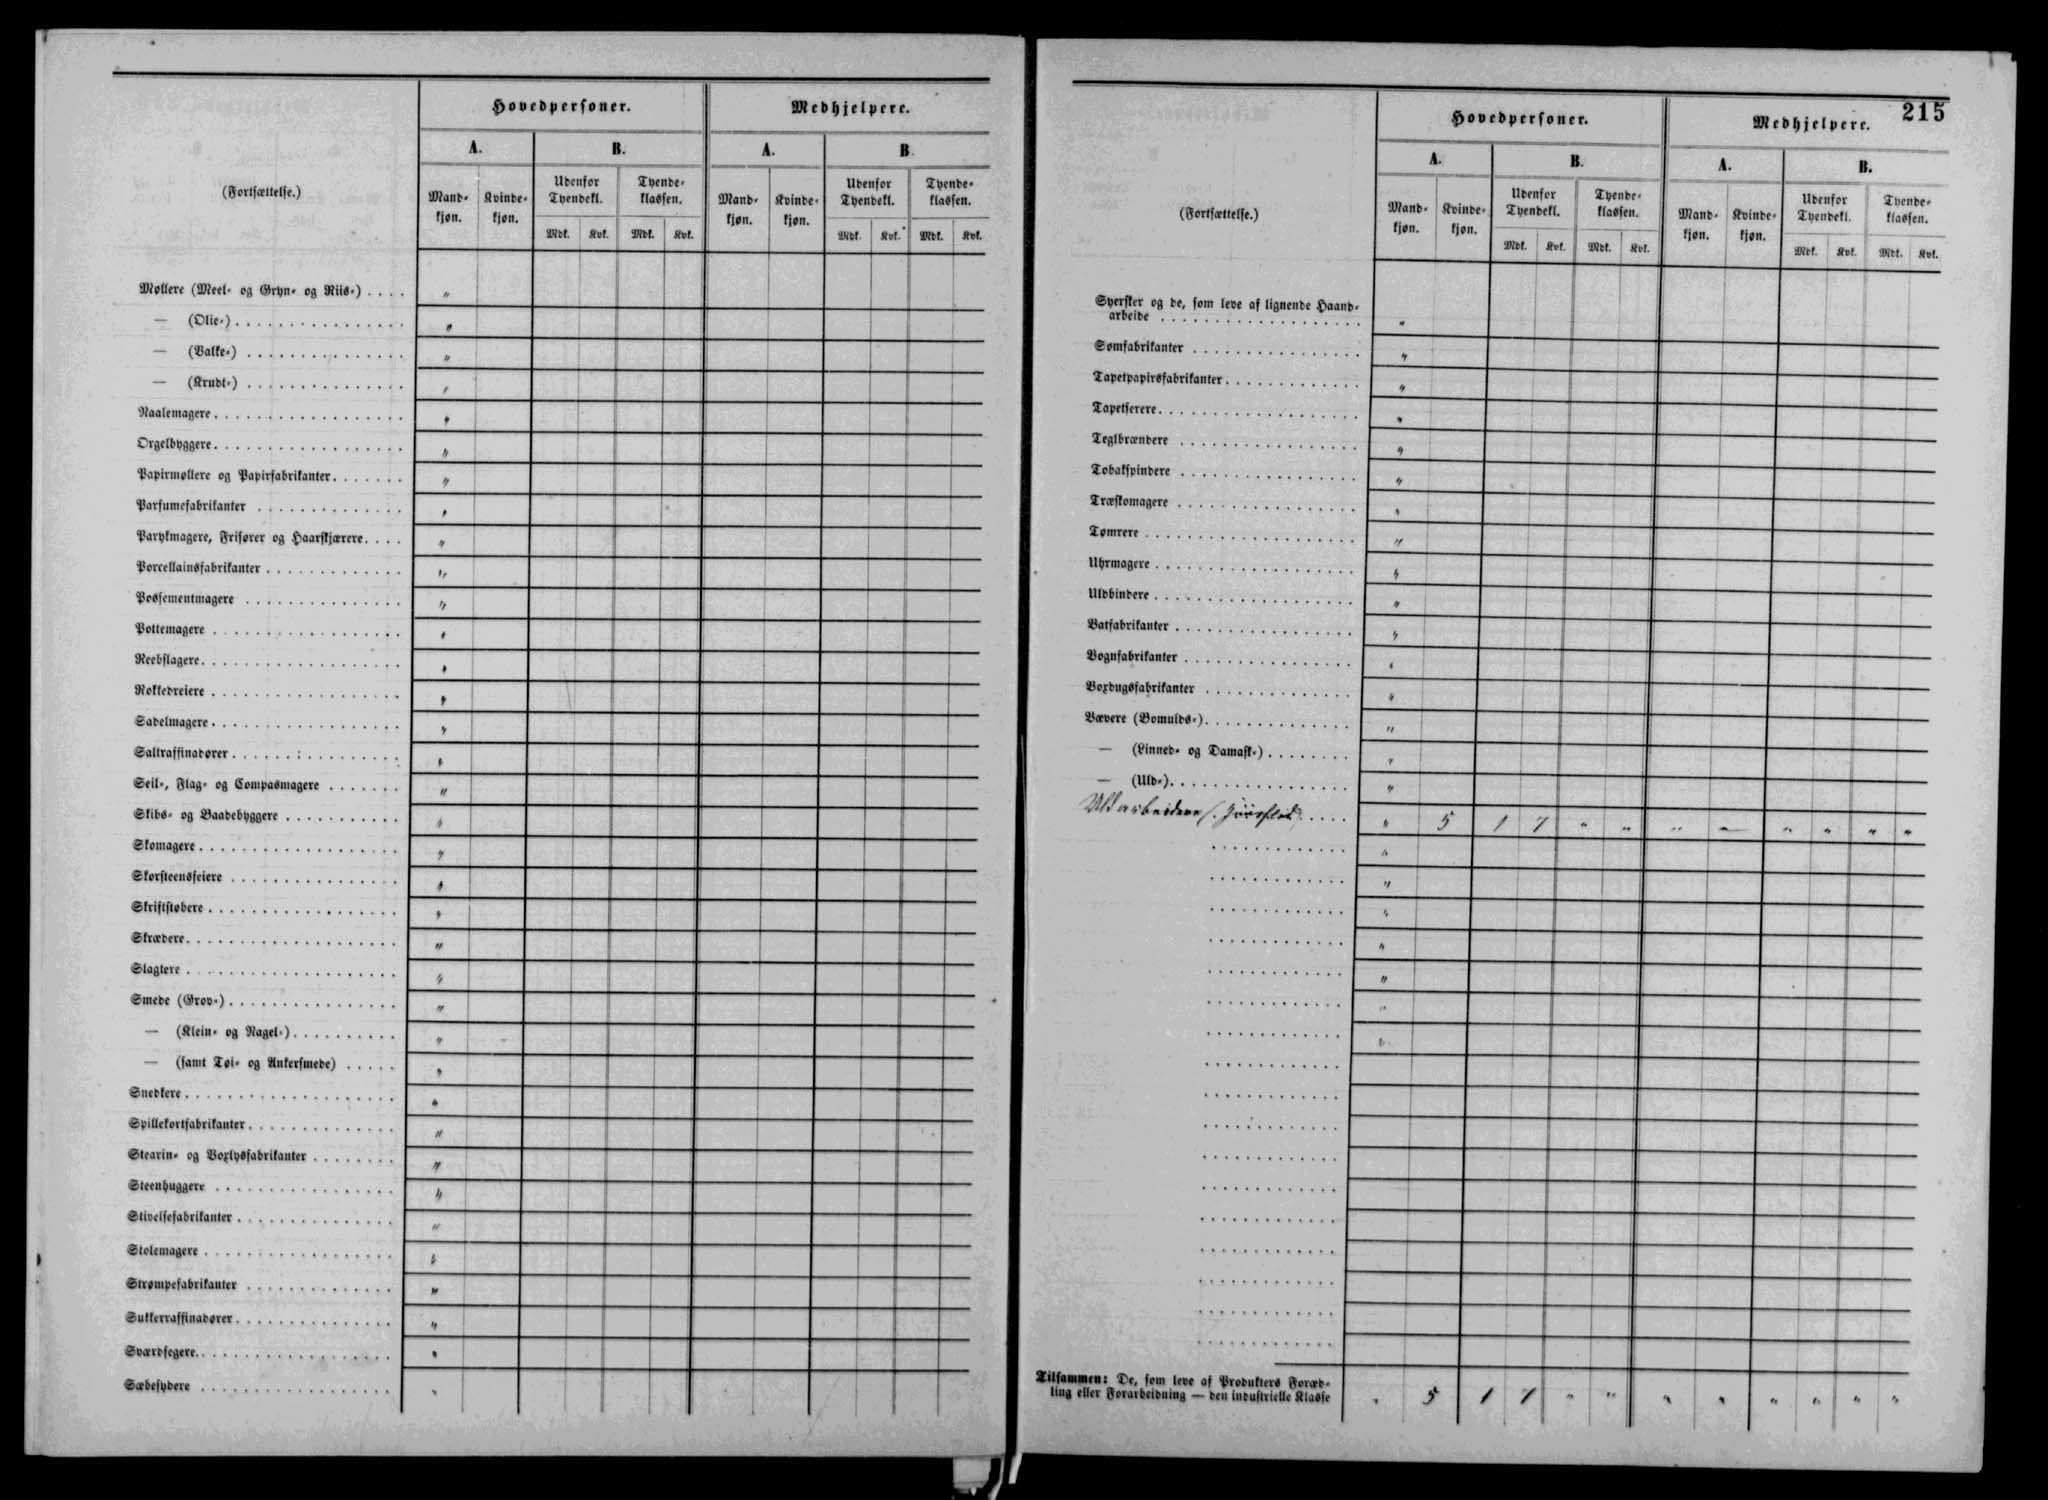 Hovedpersoner. Medhjelpere.
A. B. A. B.
(Fortsættelse.)
Mandkjøn. Kvindekjøn. Udenfor Tyendekl. Tyendeklassen. Mandkjøn. Kvindekjøn. Udenfor Tyendekl. Tyendeklassen.
Mdk. Kvk. Mdk. Kvk. Mdk. Kvk. Mdk. Kvk.
Møllere (Meel- og Gryn- og Riis-) . . . . "
— (Olie-) . . . . "
— (Valke-) . . . . "
— (Krudt-) . . . . "
Naalemagere . . . . "
Orgelbyggere . . . . "
Papirmøllere og Papirfabrikanter . . . . "
Parfumefabrikanter . . . . "
Parykmagere, Frisører og Haarskjærere . . . . "
Porcellainsfabrikanter . . . . "
Possementmagere . . . . "
Pottemagere . . . . "
Reebslagere . . . . "
Rokkedreiere . . . . "
Sadelmagere . . . . "
Saltraffinadører . . . . "
Seil-, Flag- og Compasmagere . . . . "
Skibs- og Baadebyggere . . . . "
Skomagere . . . . "
Skorsteensfeiere . . . . "
Skriftstøbere . . . . "
Skrædere . . . . "
Slagtere . . . . "
Smede (Grov-) . . . . "
— (Klein- og Nagel-) . . . . "
— (samt Tøi- og Ankersmede) . . . . "
Snedkere . . . . "
Spillekortfabrikanter . . . . "
Stearin- og Voxlysfabrikanter . . . . "
Steenhuggere . . . . "
Stivelsefabrikanter . . . . "
Stolemagere . . . . "
Strømpefabrikanter . . . . "
Sukkerraffinadører . . . . "
Sværdfegere . . . . "
Sæbesydere . . . . "
215
Hovedpersoner. Medhjelpere.
A. B. A. B.
(Fortsættelse.)
Mandkjøn. Kvindekjøn. Udenfor Tyendekl. Tyendeklassen. Mandkjøn. Kvindekjøn. Udenfor Tyendekl. Tyendeklassen.
Mdk. Kvk. Mdk. Kvk. Mdk. Kvk. Mdk. Kvk.
Syersker og de, som leve af lignende Haand-
arbeide . . . . "
Sømfabrikanter . . . . "
Tapetpapirsfabrikanter . . . . "
Tapetserere . . . . "
Teglbrændere . . . . "
Tobakspindere . . . . "
Træskomagere . . . . "
Tømrere . . . . "
Uhrmagere . . . . "
Uldbindere . . . . "
Vatfabrikanter . . . . "
Vognfabrikanter . . . . "
Voxdugsfabrikanter . . . . "
Vævere (Bomulds-) . . . . "
— (Linned- og Damask-) . . . . "
— (Uld-) . . . . "
Uldarbeidere . . . . " 5 1 7 " " " " " " " "
"
"
"
"
"
"
"
Tilsammen: De, som leve af Produkters Foræd-
ling eller Forarbeidning — den industrielle Klasse " 5 1 7 " " " " " " " "